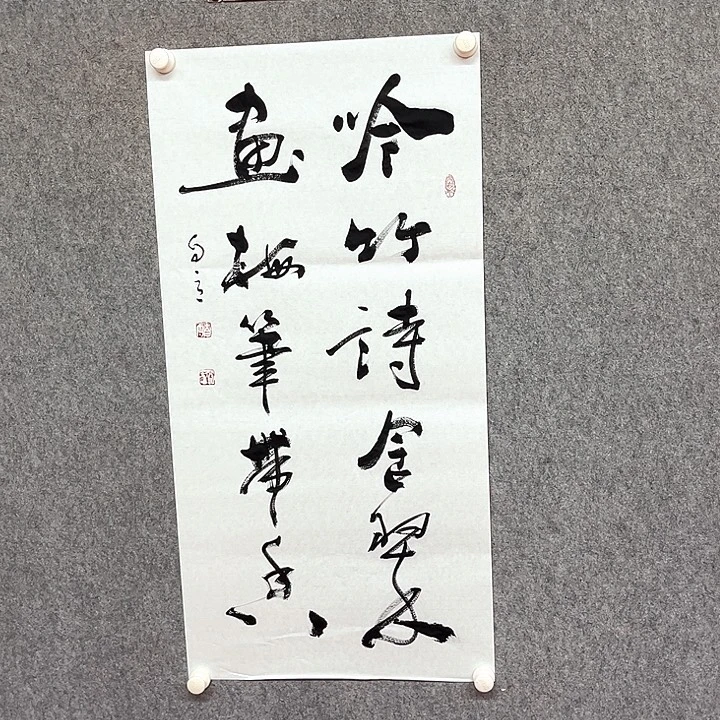 吟竹詩含翠
画梅筆帶香